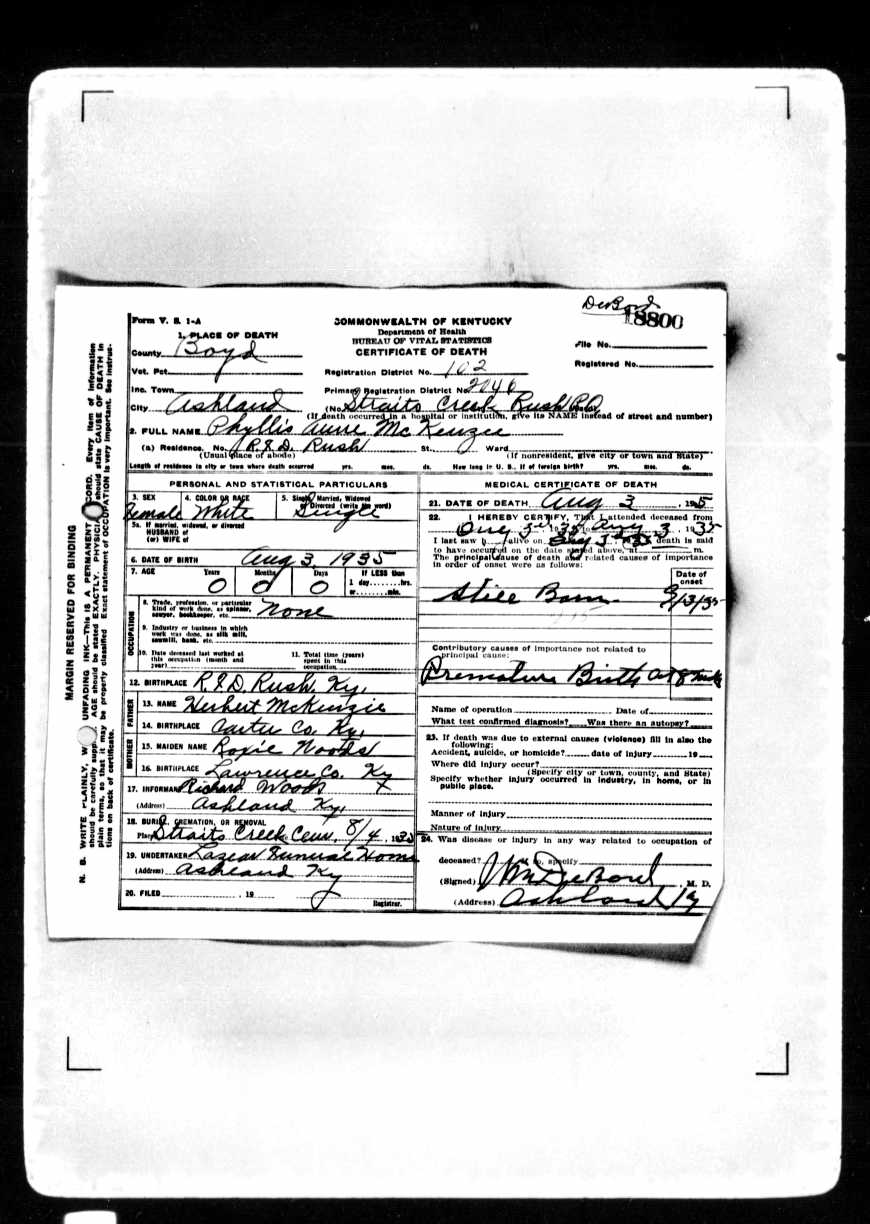 DeBord
18800
Form V. S. 1-A
COMMONWEALTH OF KENTUCKY
Department of Health
BUREAU OF VITAL STATISTICS
CERTIFICATE OF DEATH
File No.
Registered No.
1. PLACE OF DEATH
County Boyd
Vot. Pct.
Registration District No. 102
Inc. Town
Primary Registration District No. 2040
City Ashland (No. Straits Creek Rush RD
(If death occurred in a hospital or institution, give its NAME instead of street and number)
2. FULL NAME Phyllis Anne McKenzie
(a) Residence. No. R.F.D. Rush St. Ward
(Usual place of abode) (If nonresident, give city or town and State)
Length of residence in city or town where death occurred yrs. mos. ds. How long in U. S., if of foreign birth? yrs. mos. ds.
PERSONAL AND STATISTICAL PARTICULARS
3. SEX Female
4. COLOR OR RACE White
5. Single, Married, Widowed or Divorced (write the word) Single
5a. If married, widowed, or divorced
HUSBAND of
(or) WIFE of
6. DATE OF BIRTH Aug 3, 1935
7. AGE Years Months Days If LESS than
0 0 0 1 day........hrs.
or........min.
OCCUPATION
8. Trade, profession, or particular
kind of work done, as spinner,
sawyer, bookkeeper, etc. None
9. Industry or business in which
work was done, as silk mill,
sawmill, bank, etc.
10. Date deceased last worked at
this occupation (month and
year)
11. Total time (years)
spent in this
occupation
12. BIRTHPLACE R.F.D. Rush, Ky.
FATHER
13. NAME Herbert McKenzie
14. BIRTHPLACE Carter Co. Ky.
MOTHER
15. MAIDEN NAME Roxie Woods
16. BIRTHPLACE Lawrence Co. Ky
17. INFORMANT Richard Woods
(Address) Ashland Ky.
18. BURIAL, CREMATION, OR REMOVAL
Place Straits Creek Cem. 8/4, 1935
19. UNDERTAKER Lazear Funeral Home
(Address) Ashland Ky
20. FILED , 19
Registrar.
MEDICAL CERTIFICATE OF DEATH
21. DATE OF DEATH Aug 3, 1935
22. I HEREBY CERTIFY, That I attended deceased from
Aug 3rd 1935 to Aug 3, 1935
I last saw h alive on Aug 3rd 1935 death is said
to have occurred on the date stated above, at m.
The principal cause of death and related causes of importance
in order of onset were as follows:
Date of
onset
Still Born 8/3/35
Contributory causes of importance not related to
principal cause:
Premature Birth at 8
Name of operation Date of
What test confirmed diagnosis? Was there an autopsy?
23. If death was due to external causes (violence) fill in also the
following:
Accident, suicide, or homicide? date of injury 19
Where did injury occur?
(Specify city or town, county, and State)
Specify whether injury occurred in industry, in home, or in
public place.
Manner of injury
Nature of injury
24. Was disease or injury in any way related to occupation of
deceased? If so, specify
(Signed) DeBord, M. D.
(Address) Ashland Ky
MARGIN RESERVED FOR BINDING